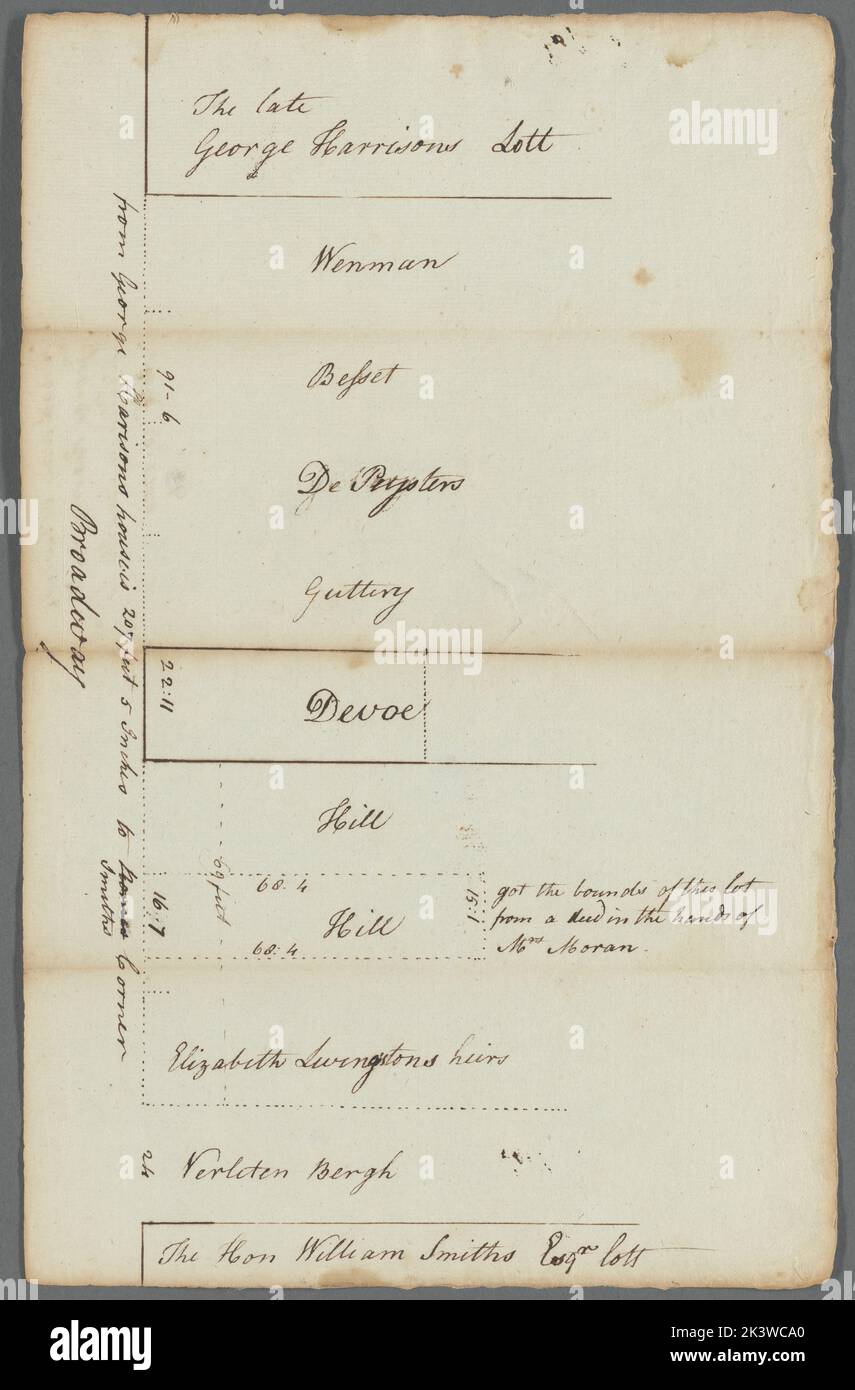 The late
George Harrisons Lott
Wenman
Besset
91-6
De Peysters
Guttery
22:11
Devoe
Hill
69 feet
68.4
16:7
Hill
15:1
68.4
got the bounds of this lot
from a deed in the hands of
Mrs Moran.
Elizabeth Livingstons heirs
24
Verleten Bergh
The Hon William Smiths Esqr lott
from George Harisons house is 207 feet 5 Inches to Corner
Smiths
Broadway
a alamy
alamy
Image ID: 2K3WCA0
www.alamy.com